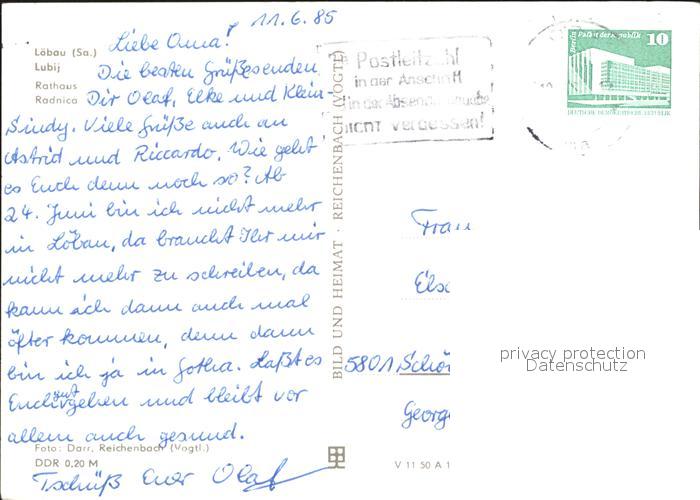 11.6.85
Löbau (Sa.)
Lubij
Rathaus
Radnica
Liebe Oma!
Die besten Grüße senden
Dir Olaf, Elke und Klein-
Sindy. Viele Grüße auch an
Astrid und Riccardo. Wie geht
es Euch denn noch so? Ab
24. Juni bin ich nicht mehr
in Löbau, da braucht Ihr mir
nicht mehr zu schreiben, da
kann ich dann auch mal
öfter kommen, denn dann
bin ich ja in Gotha. Laßt es
Euch gut gehen und bleibt vor
allem auch gesund.
Tschüß Euer Olaf
Foto: Darr, Reichenbach (Vogtl.)
DDR 0,20 M
BILD UND HEIMAT · REICHENBACH (VOGTL)
V 11 50 A 1
Postleitzahl
in der Anschrift
in der Absenderangabe
nicht vergessen!
Berlin Palast der Republik 10
DEUTSCHE DEMOKRATISCHE REPUBLIK
Frau
Else
5801 Schön
Georg
privacy protection
Datenschutz